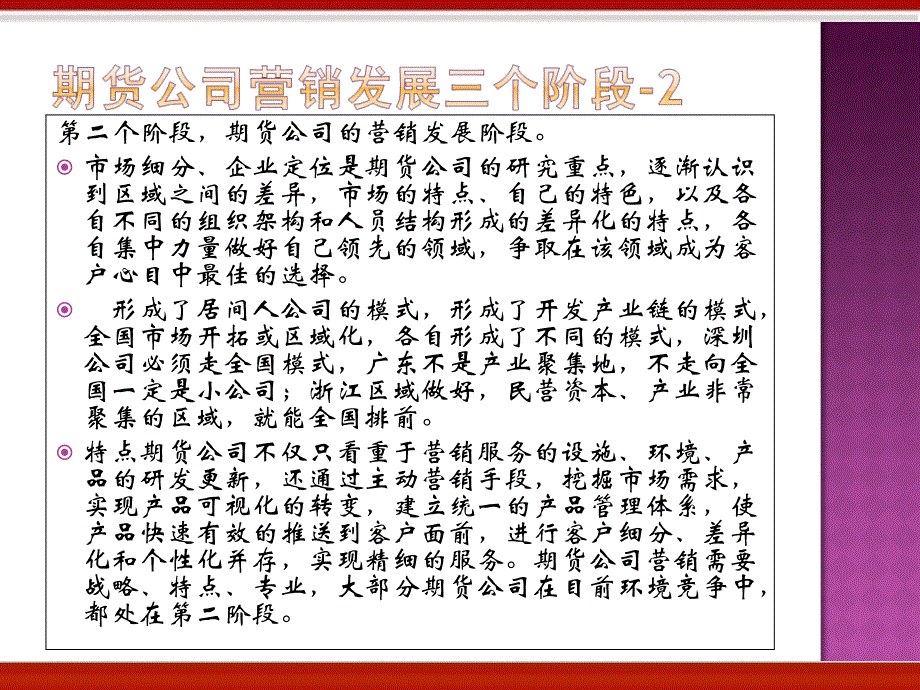 期货公司营销发展三个阶段-2
第二个阶段，期货公司的营销发展阶段。
市场细分、企业定位是期货公司的研究重点，逐渐认识
到区域之间的差异，市场的特点、自己的特色，以及各
自不同的组织架构和人员结构形成的差异化的特点，各
自集中力量做好自己领先的领域，争取在该领域成为客
户心目中最佳的选择。
形成了居间人公司的模式，形成了开发产业链的模式，
全国市场开拓或区域化，各自形成了不同的模式，深圳
公司必须走全国模式，广东不是产业聚集地，不走向全
国一定是小公司；浙江区域做好，民营资本、产业非常
聚集的区域，就能全国排前。
特点期货公司不仅只看重于营销服务的设施、环境、产
品的研发更新，还通过主动营销手段，挖掘市场需求，
实现产品可视化的转变，建立统一的产品管理体系，使
产品快速有效的推送到客户面前，进行客户细分、差异
化和个性化并存，实现精细的服务。期货公司营销需要
战略、特点、专业，大部分期货公司在目前环境竞争中，
都处在第二阶段。